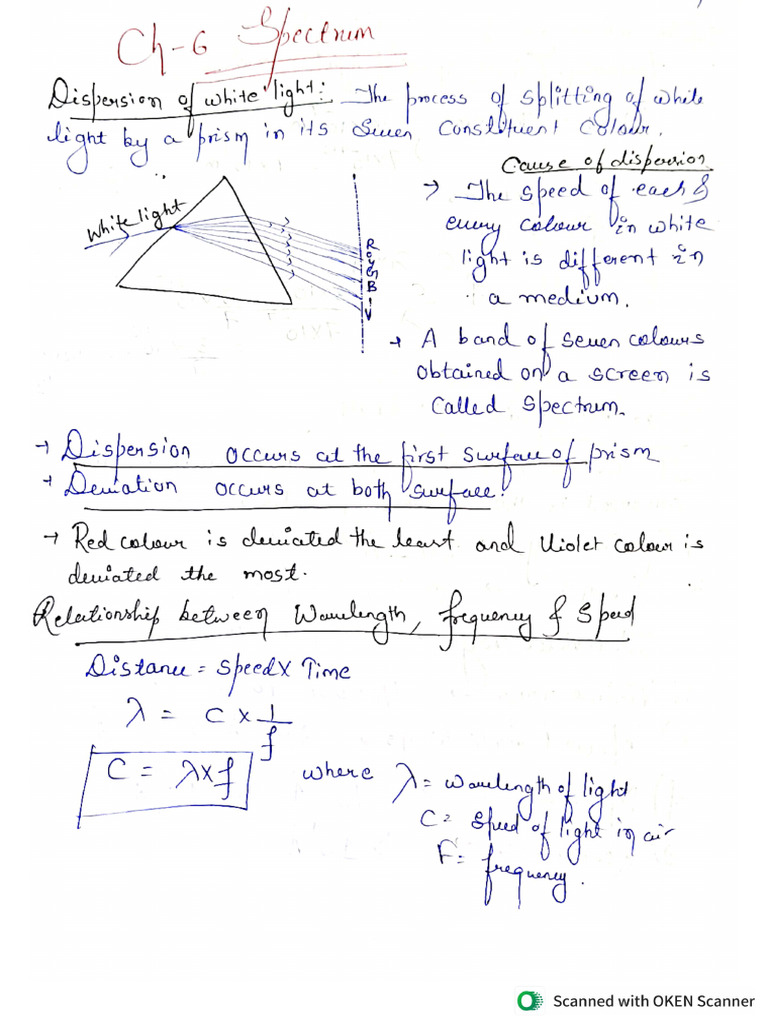 Ch-6 Spectrum
Dispersion of white light: The process of splitting of white
light by a prism in its seven constituent colour.
Cause of dispersion
→ The speed of each &
every colour in white
light is different in
a medium.
White light
R
O
Y
G
B
I
V
→ A band of seven colours
obtained on a screen is
called spectrum.
→ Dispersion occurs at the first surface of prism
→ Deviation occurs at both surface.
→ Red colour is deviated the least and Violet colour is
deviated the most.
Relationship between Wavelength, frequency & Speed
Distance = Speed x Time
λ = C x 1/f
C = λ x f
where λ = wavelength of light
C = Speed of light in air
F = frequency.
Scanned with OKEN Scanner